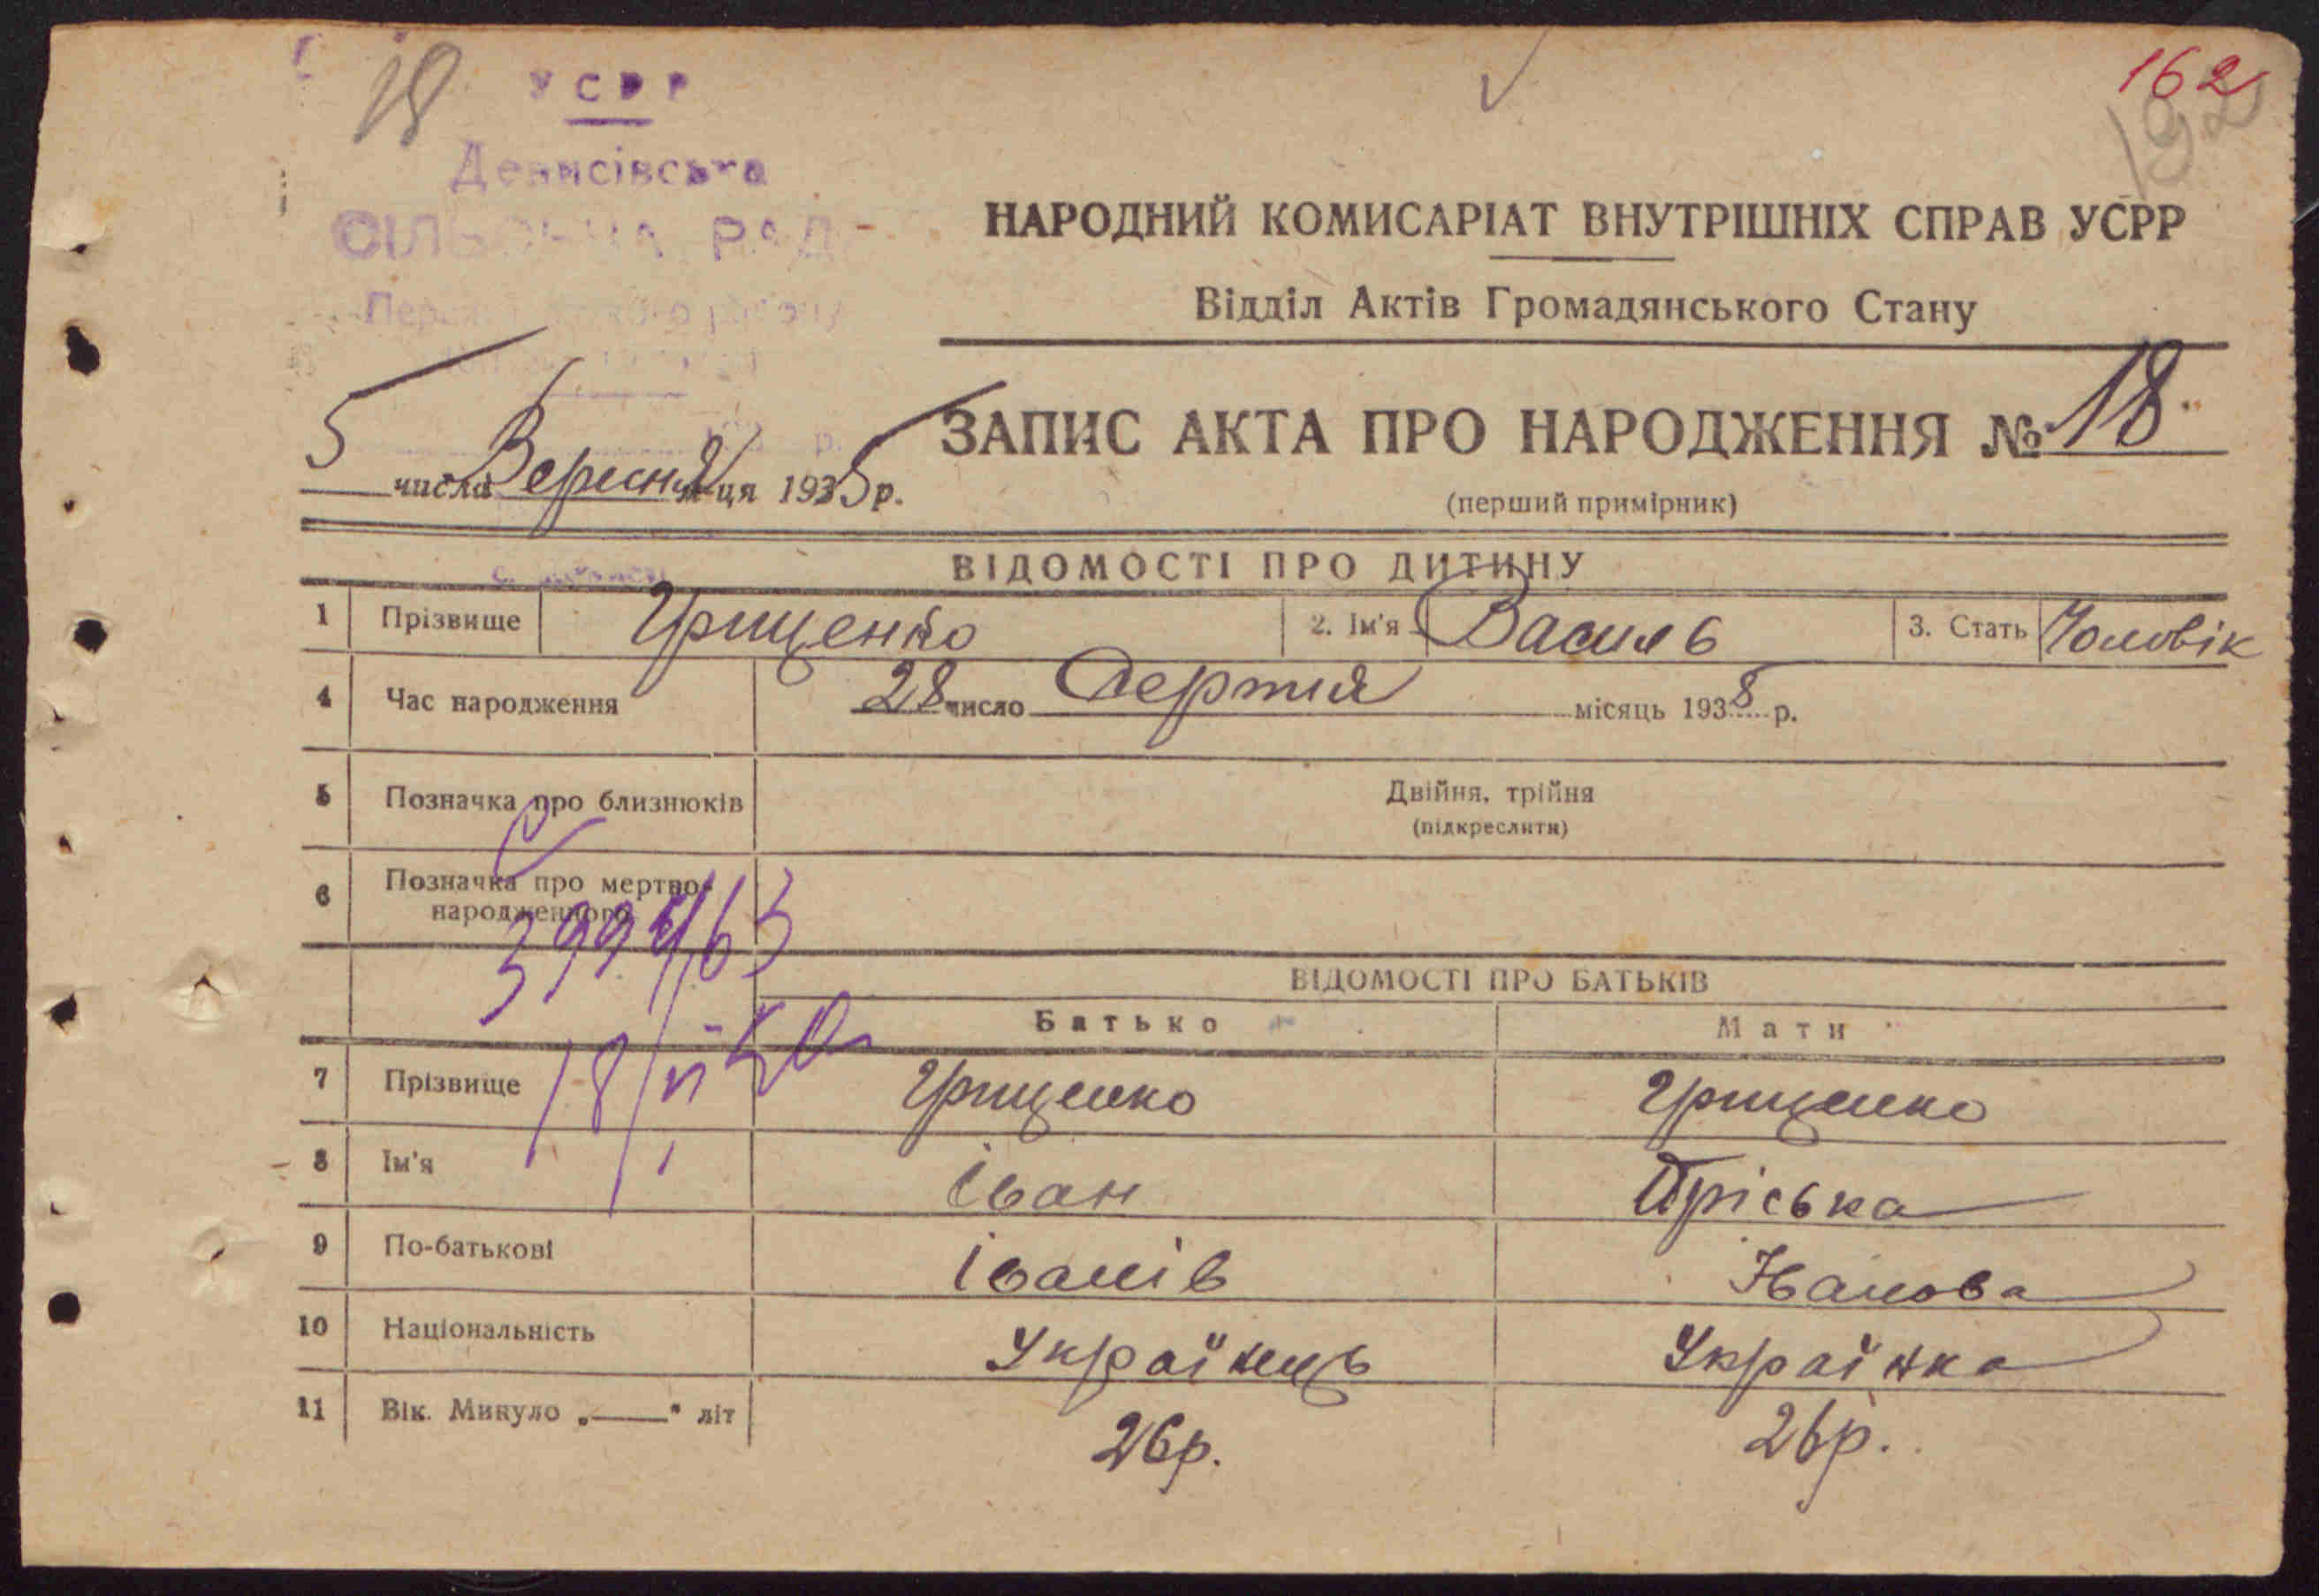 18
УСРР
162
192
Денисівська
СІЛЬСЬКА РАДА
НАРОДНИЙ КОМИСАРІАТ ВНУТРІШНІХ СПРАВ УСРР
Відділ Актів Громадянського Стану
ЗАПИС АКТА ПРО НАРОДЖЕННЯ № 18
5 числа Вересня м-ця 1935 р.
(перший примірник)
ВІДОМОСТІ ПРО ДИТИНУ
1 Прізвище Грищенко 2. Ім'я Василь 3. Стать Чоловік
4 Час народження 28 число Серпня місяць 193 р.
5 Позначка про близнюків Двійня, трійня
(підкреслити)
6 Позначка про мертво-
народженного
ВІДОМОСТІ ПРО БАТЬКІВ
Батько Мати
7 Прізвище Грищенко Грищенко
8 Ім'я Іван Пріська
9 По-батькові Іванів Іванова
10 Національність Українець Українка
11 Вік. Минуло „—" літ 26р. 26р.